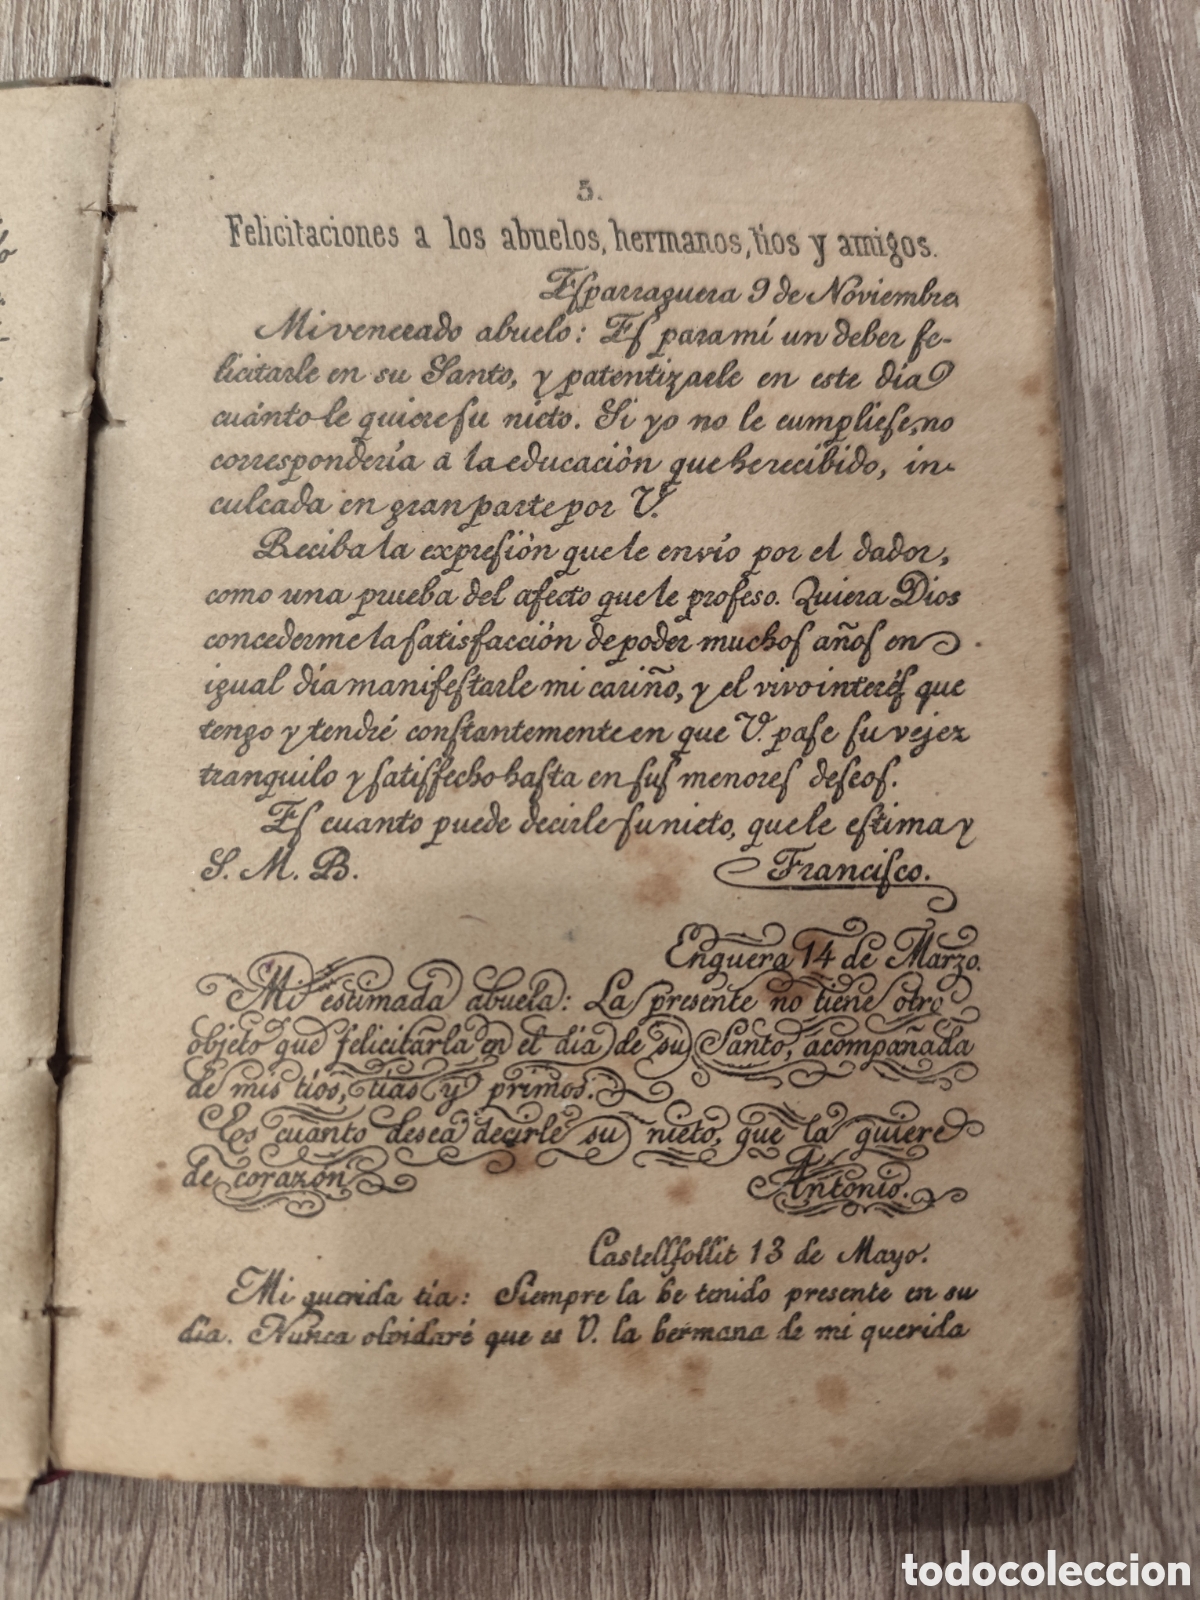 5.
Felicitaciones a los abuelos, hermanos, tios y amigos.
Esparraguera 9 de Noviembre.
Mi venerado abuelo: Es para mí un deber fe-
licitarle en su Santo, y patentizarle en este día
cuánto le quiere su nieto. Si yo no le cumpliese, no
correspondería á la educación que he recibido, in-
culcada en gran parte por V.
Reciba la expresión que le envío por el dador,
como una prueba del afecto que le profeso. Quiera Dios
concederme la satisfacción de poder muchos años en
igual día manifestarle mi cariño, y el vivo interés que
tengo y tendré constantemente en que V. pase su vejez
tranquilo y satisfecho hasta en sus menores deseos.
Es cuanto puede decirle su nieto, que le estima y
S. M. B. Francisco.
Enguera 14 de Marzo.
Mi estimada abuela: La presente no tiene otro
objeto que felicitarla en el dia de su Santo, acompañada
de mis tíos, tías y primos.
Es cuanto desea decirle su nieto, que la quiere
de corazón Antonio.
Castellfollit 13 de Mayo.
Mi querida tía: Siempre la he tenido presente en su
día. Nunca olvidaré que es V. la hermana de mi querida
todocoleccion